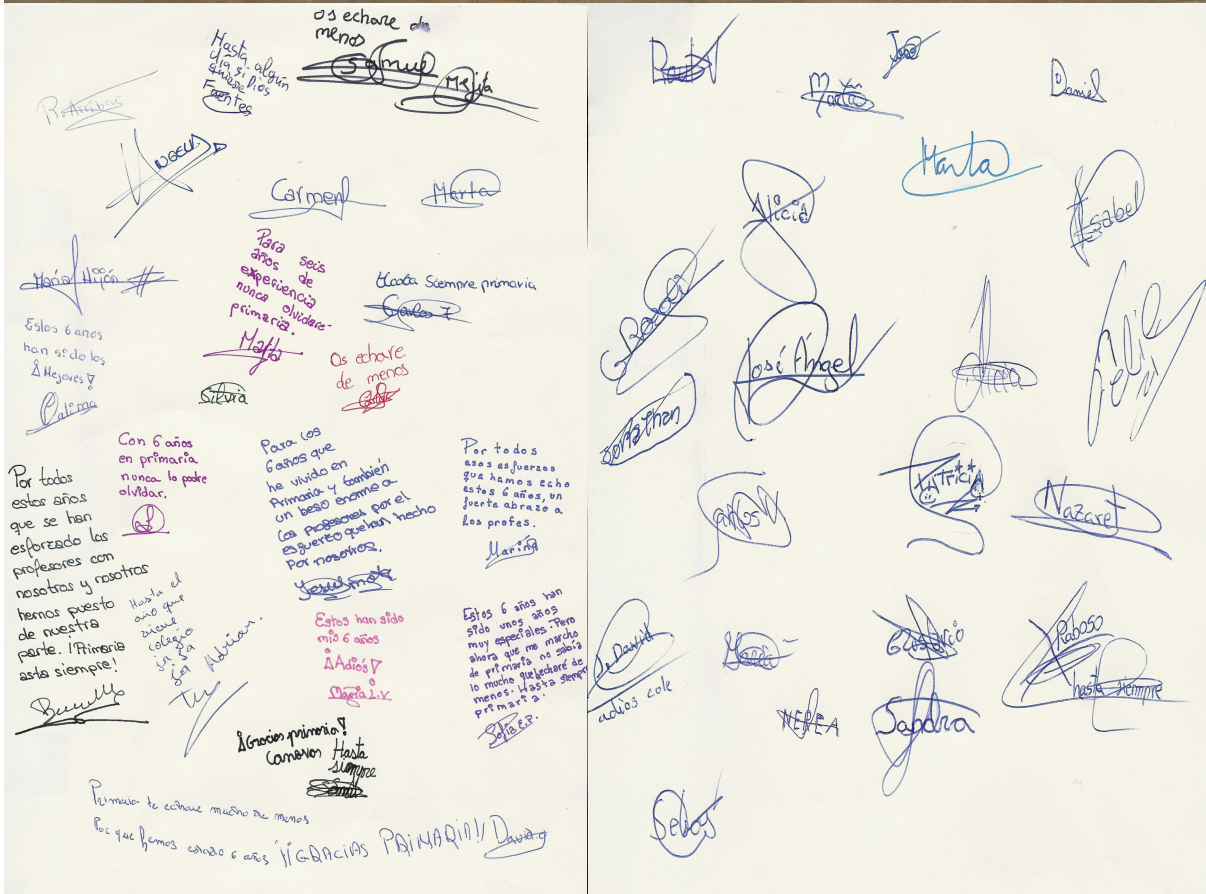 Os echare de
menos
Samuel
Mejita
Hasta algún
día si Dios
quiere
Fuentes
R. Arribas
Carmen
Marta
María Hijón
Para seis
años de
experiencia
nunca olvidare
primaria.
Hasta Siempre primaria
Carlos
Estos 6 años
han sido los
¡Mejores!
Silvia
Os echare
de menos
Con 6 años
en primaria
nunca lo podre
olvidar.
Para los
6 años que
he vivido en
Primaria y también
un beso enorme a
los profesores por el
esfuerzo que han hecho
Por nosotros.
Por todos
esos esfuerzos
que hemos echo
estos 6 años, un
fuerte abrazo a
los profes.
Marina
Por todos
estos años
que se han
esforzado los
profesores con
nosotros y nosotros
hemos puesto
de nuestra
parte. ¡Primaria
asta siempre!
Hasta el
año que
viene
colegio
Adrian.
Estos han sido
mis 6 años
¡Adiós!
María L.V.
Estos 6 años han
sido unos años
muy especiales. Pero
ahora que me marcho
de primaria no sabía
lo mucho que echaré de
menos. Hasta siempre
primaria.
Sofía E.P.
¡Gracias primaria!
Canovas Hasta
siempre
Primaria te echare mucho de menos
Por que hemos estado 6 años ¡¡GRACIAS PRIMARIA!! David
José
Daniel
Marta
Marta
Alicia
Isabel
José Ángel
Jonathan
Carlos
Patricia
Nazaret
J. David
adios cole
María
Raboso
hasta siempre
NEREA
Sandra